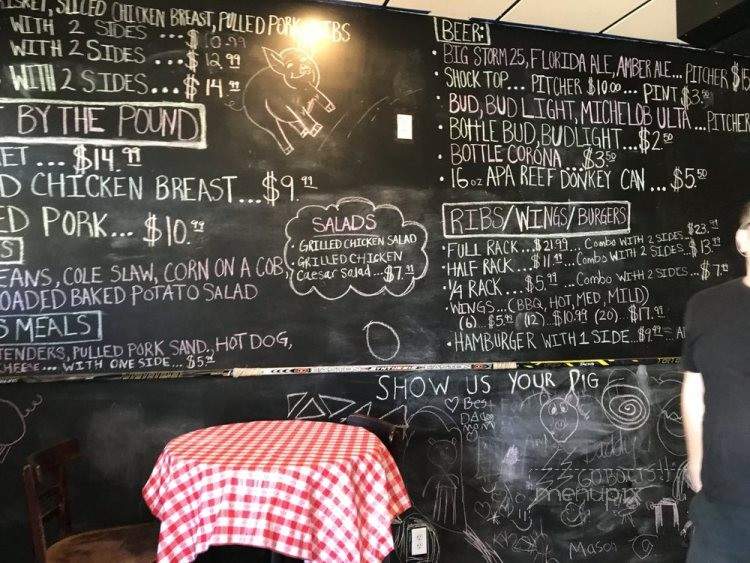 SLICED CHICKEN BREAST, PULLED PORK, RIBS
WITH 2 SIDES ... $10.99
WITH 2 SIDES ... $12.99
WITH 2 SIDES... $14.99
BY THE POUND
... $14.99
CHICKEN BREAST...$9.99
PORK... $10.99
COLE SLAW, CORN ON A COB,
BAKED POTATO SALAD
MEALS
PULLED PORK SAND, HOT DOG,
... WITH ONE SIDE... $5.99
SALADS
• GRILLED CHICKEN SALAD
• GRILLED CHICKEN
Caesar Salad...$7.99
BEER:
• BIG STORM 25, FLORIDA ALE, AMBER ALE... PITCHER $15
• SHOCK TOP... PITCHER $10.00... PINT $3.50
• BUD, BUD LIGHT, MICHELOB ULTA...PITCHER
• BOTTLE BUD, BUDLIGHT...$2.50
• BOTTLE CORONA...$3.50
• 16oz APA REEF DONKEY CAN ... $5.50
RIBS/WINGS/BURGERS
• FULL RACK...$21.99...COMBO WITH 2 SIDES...$23.99
• HALF RACK...$11.99...COMBO WITH 2 SIDES...$13.99
• 1/4 RACK...$5.99 ...COMBO WITH 2 SIDES...$7.99
• WINGS...(BBQ, HOT, MED, MILD)
(6) $5.99 (12)..$10.99 (20)...$17.99
• HAMBURGER WITH 1 SIDE...$9.99...
SHOW US YOUR PIG
Best
Daddy
GO BOLTS!
menupix
Mason